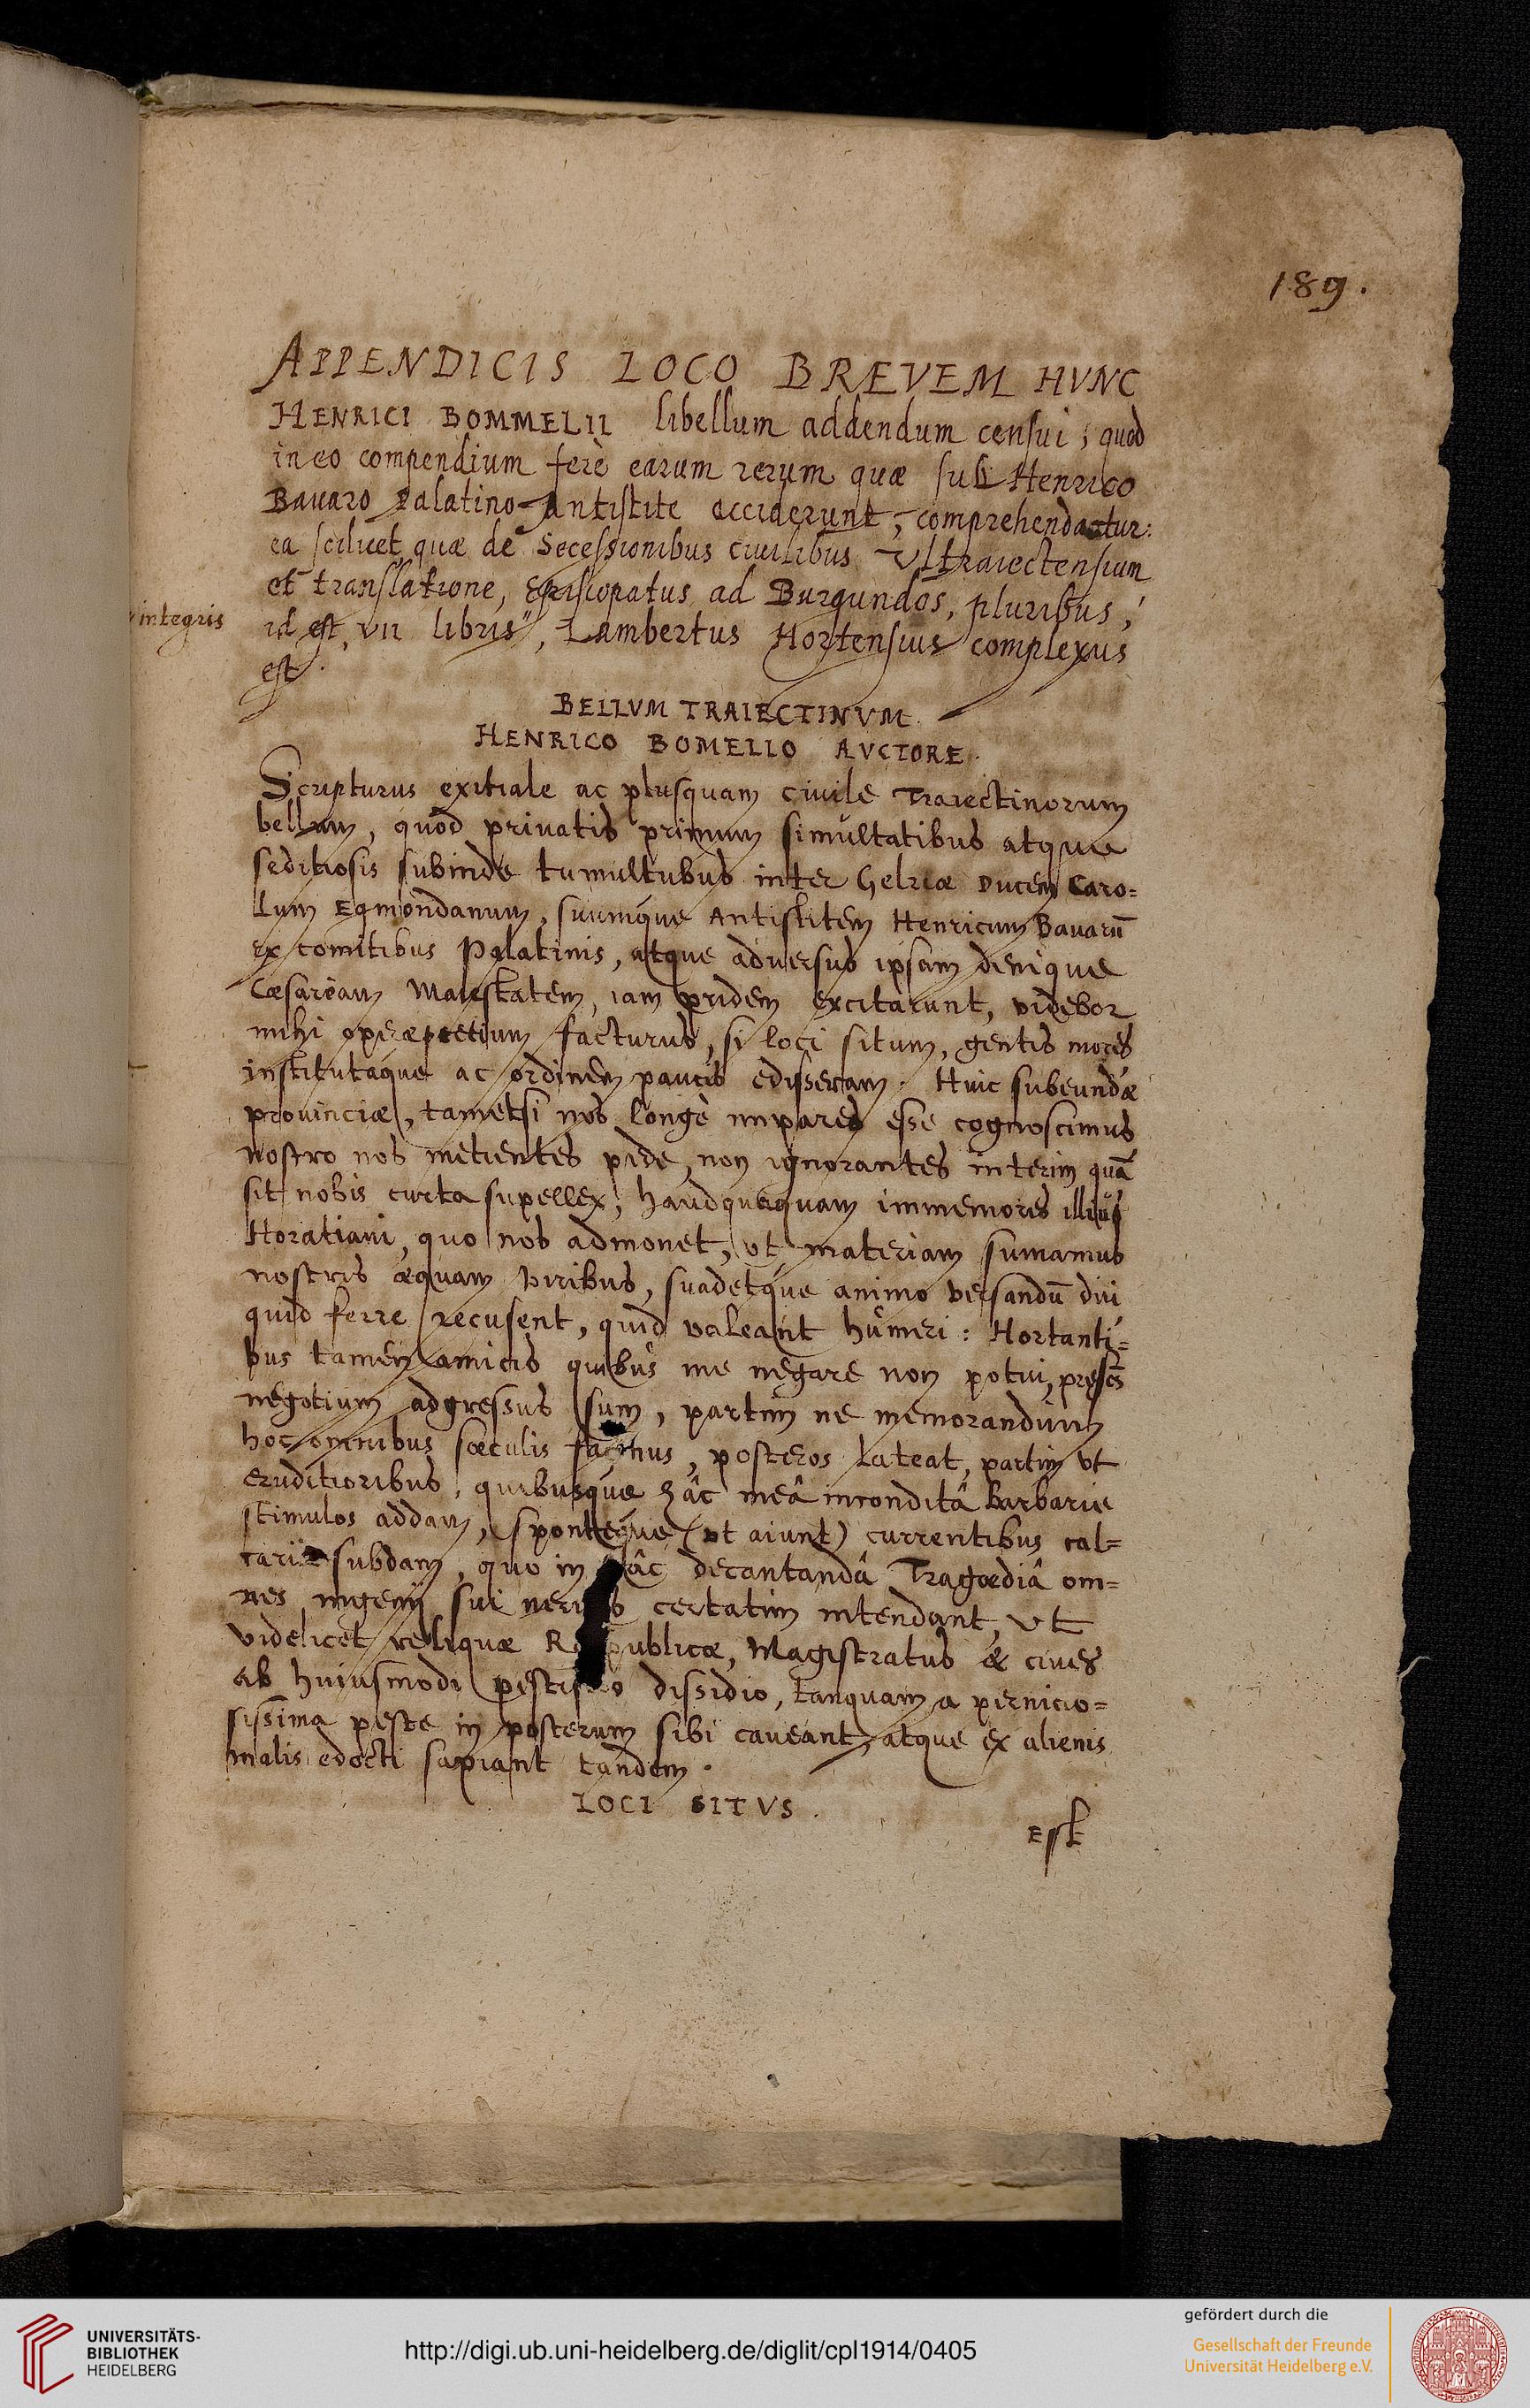 189.
APPENDICIS LOCO BREVEM HVNC
HENRICI BOMMELII libellum addendum censui; quod
in eo compendium ferè earum rerum quæ sub Henrico
Bauaro Palatino Antistite acciderunt, comprehendatur:
ea scilicet quæ de Secessionibus ciuilibus Vltraiectensium
et translatione, Episcopatus ad Burgundos, pluribus,
integris
id est, VII libris", Lambertus Hortensius complexus
est.
BELLVM TRAIECTINVM.
HENRICO BOMELLO AVCTORE.
Scripturus exitiale ac plusquam ciuile Traiectinorum
bellum, quod priuatis primum simultatibus atque
seditiosis subinde tumultubus inter Gelriæ Ducem Caro-
lum Egmondanum, suumque Antistitem Henricum Bauarū
ex comitibus Palatinis, atque aduersus ipsam denique
Cæsaream Maiestatem, iam pridem excitarunt, videbor
mihi operæpretium facturus, si loci situm, gentis mores
institutáque ac ordinem paucis edisseram. Huic subeundæ
prouinciæ, tametsi nos longè impares esse cognoscimus
nostro nos metientes pede, non ignorantes interim quā
sit nobis curta supellex, haudquaquam immemores illius
Horatiani, quo nos admonet, vt materiam sumamus
nostris æquam viribus, suadetque animo versandū diu
quid ferre recusent, quid valeant humeri: Hortanti-
bus tamen amicis quibus me negare non potui, presēs
negotium adgressus sum, partim ne memorandum
hoc omnibus sæculis facinus, posteros lateat, partim vt
eruditioribus, quibusque hâc meâ inconditâ barbarie
stimulos addam, sponteque (vt aiunt) currentibus cal-
caria subdam, quo in hâc decantandâ Tragœdiâ om-
nes ingenij sui neruos certatim intendant, vt
videlicet reliquæ Reipublicæ, Magistratus & ciues
ab huiusmodi pestifero dissidio, tanquam a pernicio-
sissima peste in posterum sibi caueant, atque ex alienis
malis edocti sapiant tandem.
LOCI SITVS.
Est
UNIVERSITÄTS-
BIBLIOTHEK
HEIDELBERG
http://digi.ub.uni-heidelberg.de/diglit/cpl1914/0405
gefördert durch die
Gesellschaft der Freunde
Universität Heidelberg e.V.